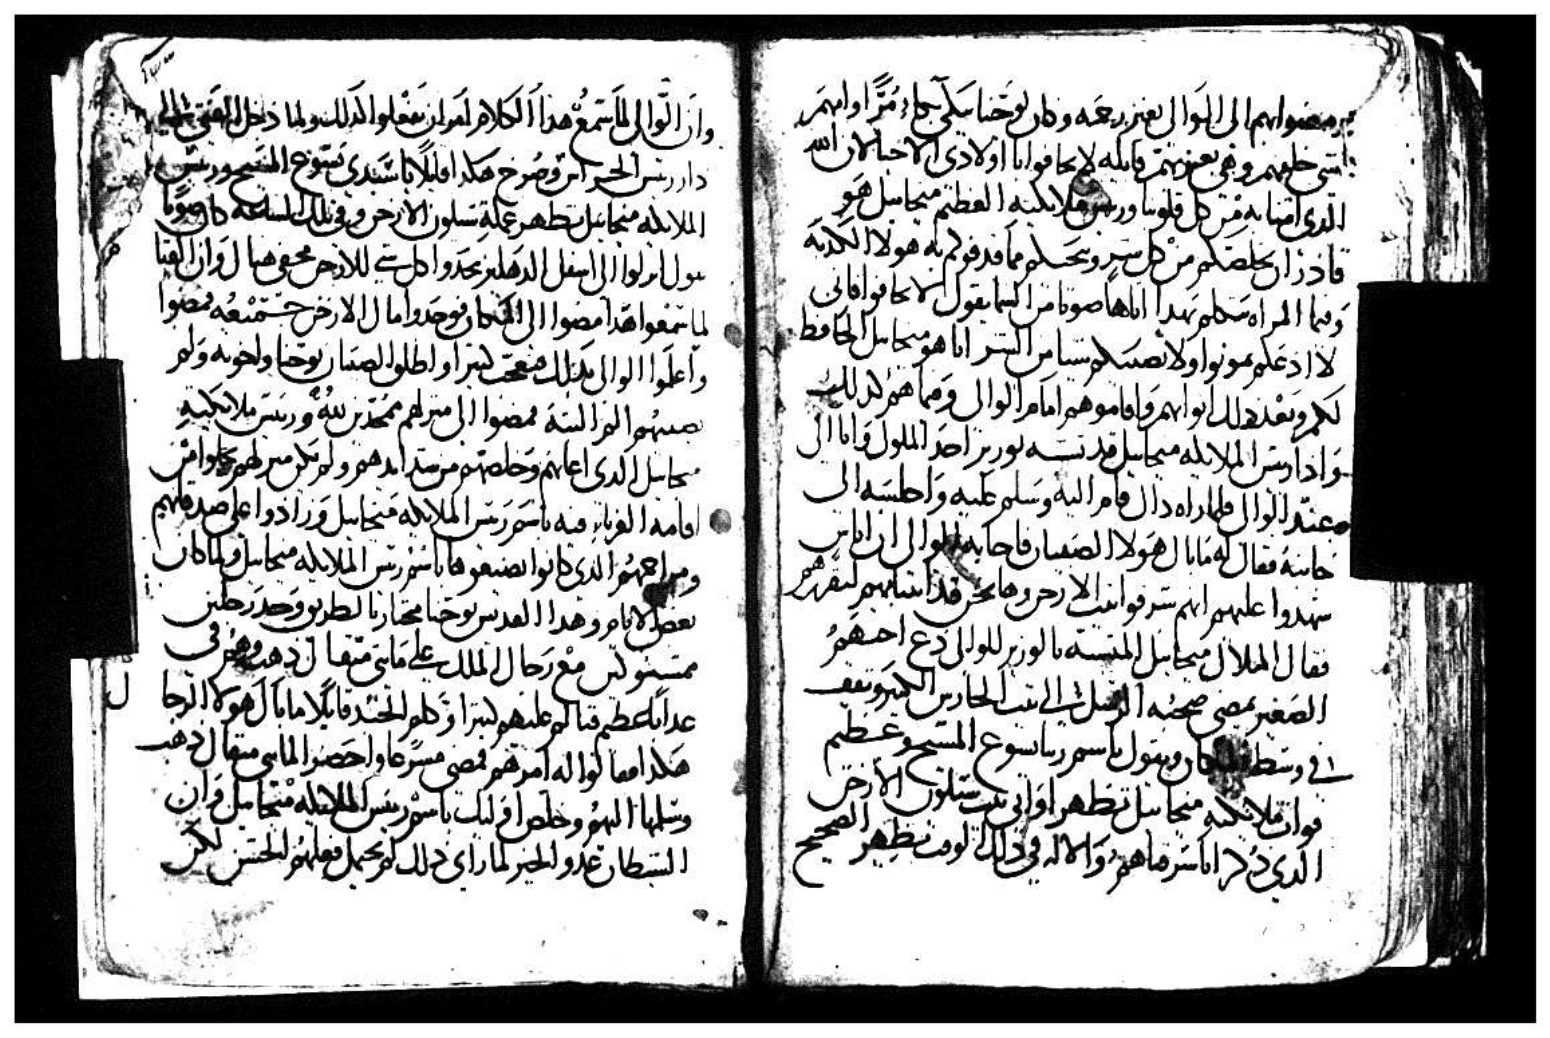 يمضوا بهم الى الوالى بغير رحمه وكان يوحنا يبكي بكاء مرًّا وامهم
تمشي خلفهم وهى تعزيهم قايله لا تخافوا يا اولادى الاحبا لان الله
الذى امنا به من كل قلوبنا ورييس ملايكته العظيم ميخاييل هو
قادر ان يخلصكم من كل شر وينجيكم مما قد قرفكم به هولا الكدبه
وفيما المراه تتكلم بهدا اتاها صوتا من السما يقول لا تخافوا فانى
لا ادعكم تموتوا ولا يصيبكم شيا من الشر انا هو ميخاييل الحافظ
لكم وبعد ذلك اتوا بهم واقاموهم امام الوالى وفيما هم كدلك
وادا رييس الملايكه ميخاييل قد تشبه بوزير احد الملوك واتا الى
عند الوالى فلما راه داك قام اليه وسلم عليه واجلسه الى
جانبه فقال له ما بال هولا الصبيان فاجابه الوالى ان اناس
شهدوا عليهم انهم سرقوا بيت الارخن وها نحن قد اتينا بهم لنقررهم
فقال الملاك ميخاييل المتشبه بالوزير للوالى دع اخيهم
الصغير يمضى صحبه الرسل الى بيت الحارس الكبير ويقف
فى وسط المكان ويقول باسم ربنا يسوع المسيح وعظيم
قوات ملايكته ميخاييل تظهر اوانى بيت سلون الارخن
الذى دكر انا سرقناهم والاله فى ذلك الوقت يظهر الصحيح
وان الوالى لما سمع هدا الكلام امر ان يفعلوا كدلك ولما دخل الفتى الى
دار رييس الحرس وصرخ هكدا قايلا يا سيدى يسوع المسيح ورييس
الملايكه ميخاييل تظهر عملة سلون الارخن وفى تلك الساعه كان صوتا
يقول انزلوا الى اسفل الدهليز تجدوا كل شى للارخن مخفى هناك وان
لما سمعوا هدا مضوا الى المكان فوجدوا مال الارخن جميعه فمضوا
واعلموا الوالى بدلك فتعجب كتيرا واطلق الصبيان يوحنا واخوته ولم
يصيبهم الم البته فمضوا الى منزلهم ممجدين لله ورييس ملايكته
ميخاييل الدى اعانهم وخلصهم من شدايدهم ولم يكن منزلهم من
اقامه الغربا فيه باسم رييس الملايكه ميخاييل وزادوا على صدقتهم
ومراحمهم الذى كانوا يصنعوها باسم رييس الملايكه ميخاييل ولما كان
بعض الايام وهدا القديس يوحنا مجتازا بالطريق وجد رجلين
ممسوكين مع رجال الملك على مايتى متقال دهب وهم فى
عدابا عظيم فتالم عليهم كتيرا وكلم الجند قايلا ما بال هولا الرجال
هكدا فقالوا له امرهم فمضى مسرعا واحضر المايتى متقال دهب
وسلمها اليهم وخلص اوليك باسم رييس الملايكه ميخاييل وان
الشيطان عدو الخير لما راى ذلك لم يحتمل فعلهم الحسن لكن